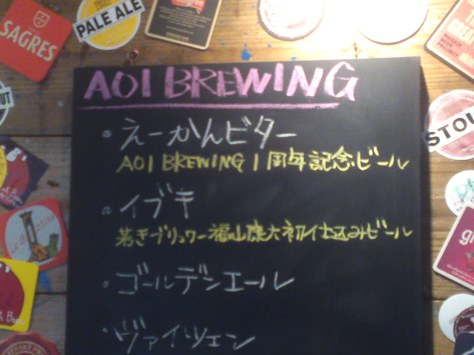 SAGRES
PALE ALE
STOU
AOI BREWING
・えーかんビター
AOI BREWING 1周年記念ビール
・イブキ
若きブリュワー福山康大初仕込みビール
・ゴールデンエール
・ヴァイツェン